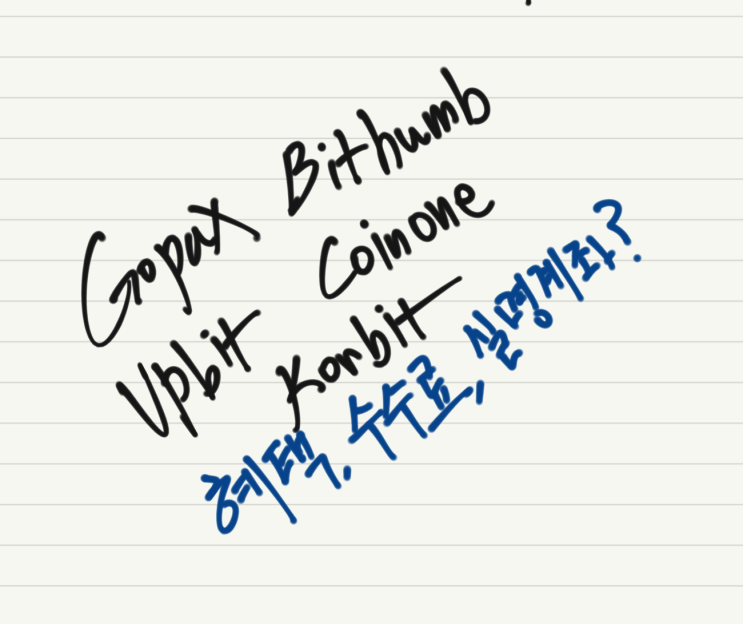 Gopax Bithumb
Upbit Coinone
Korbit
혜택, 수수료, 실명계좌?